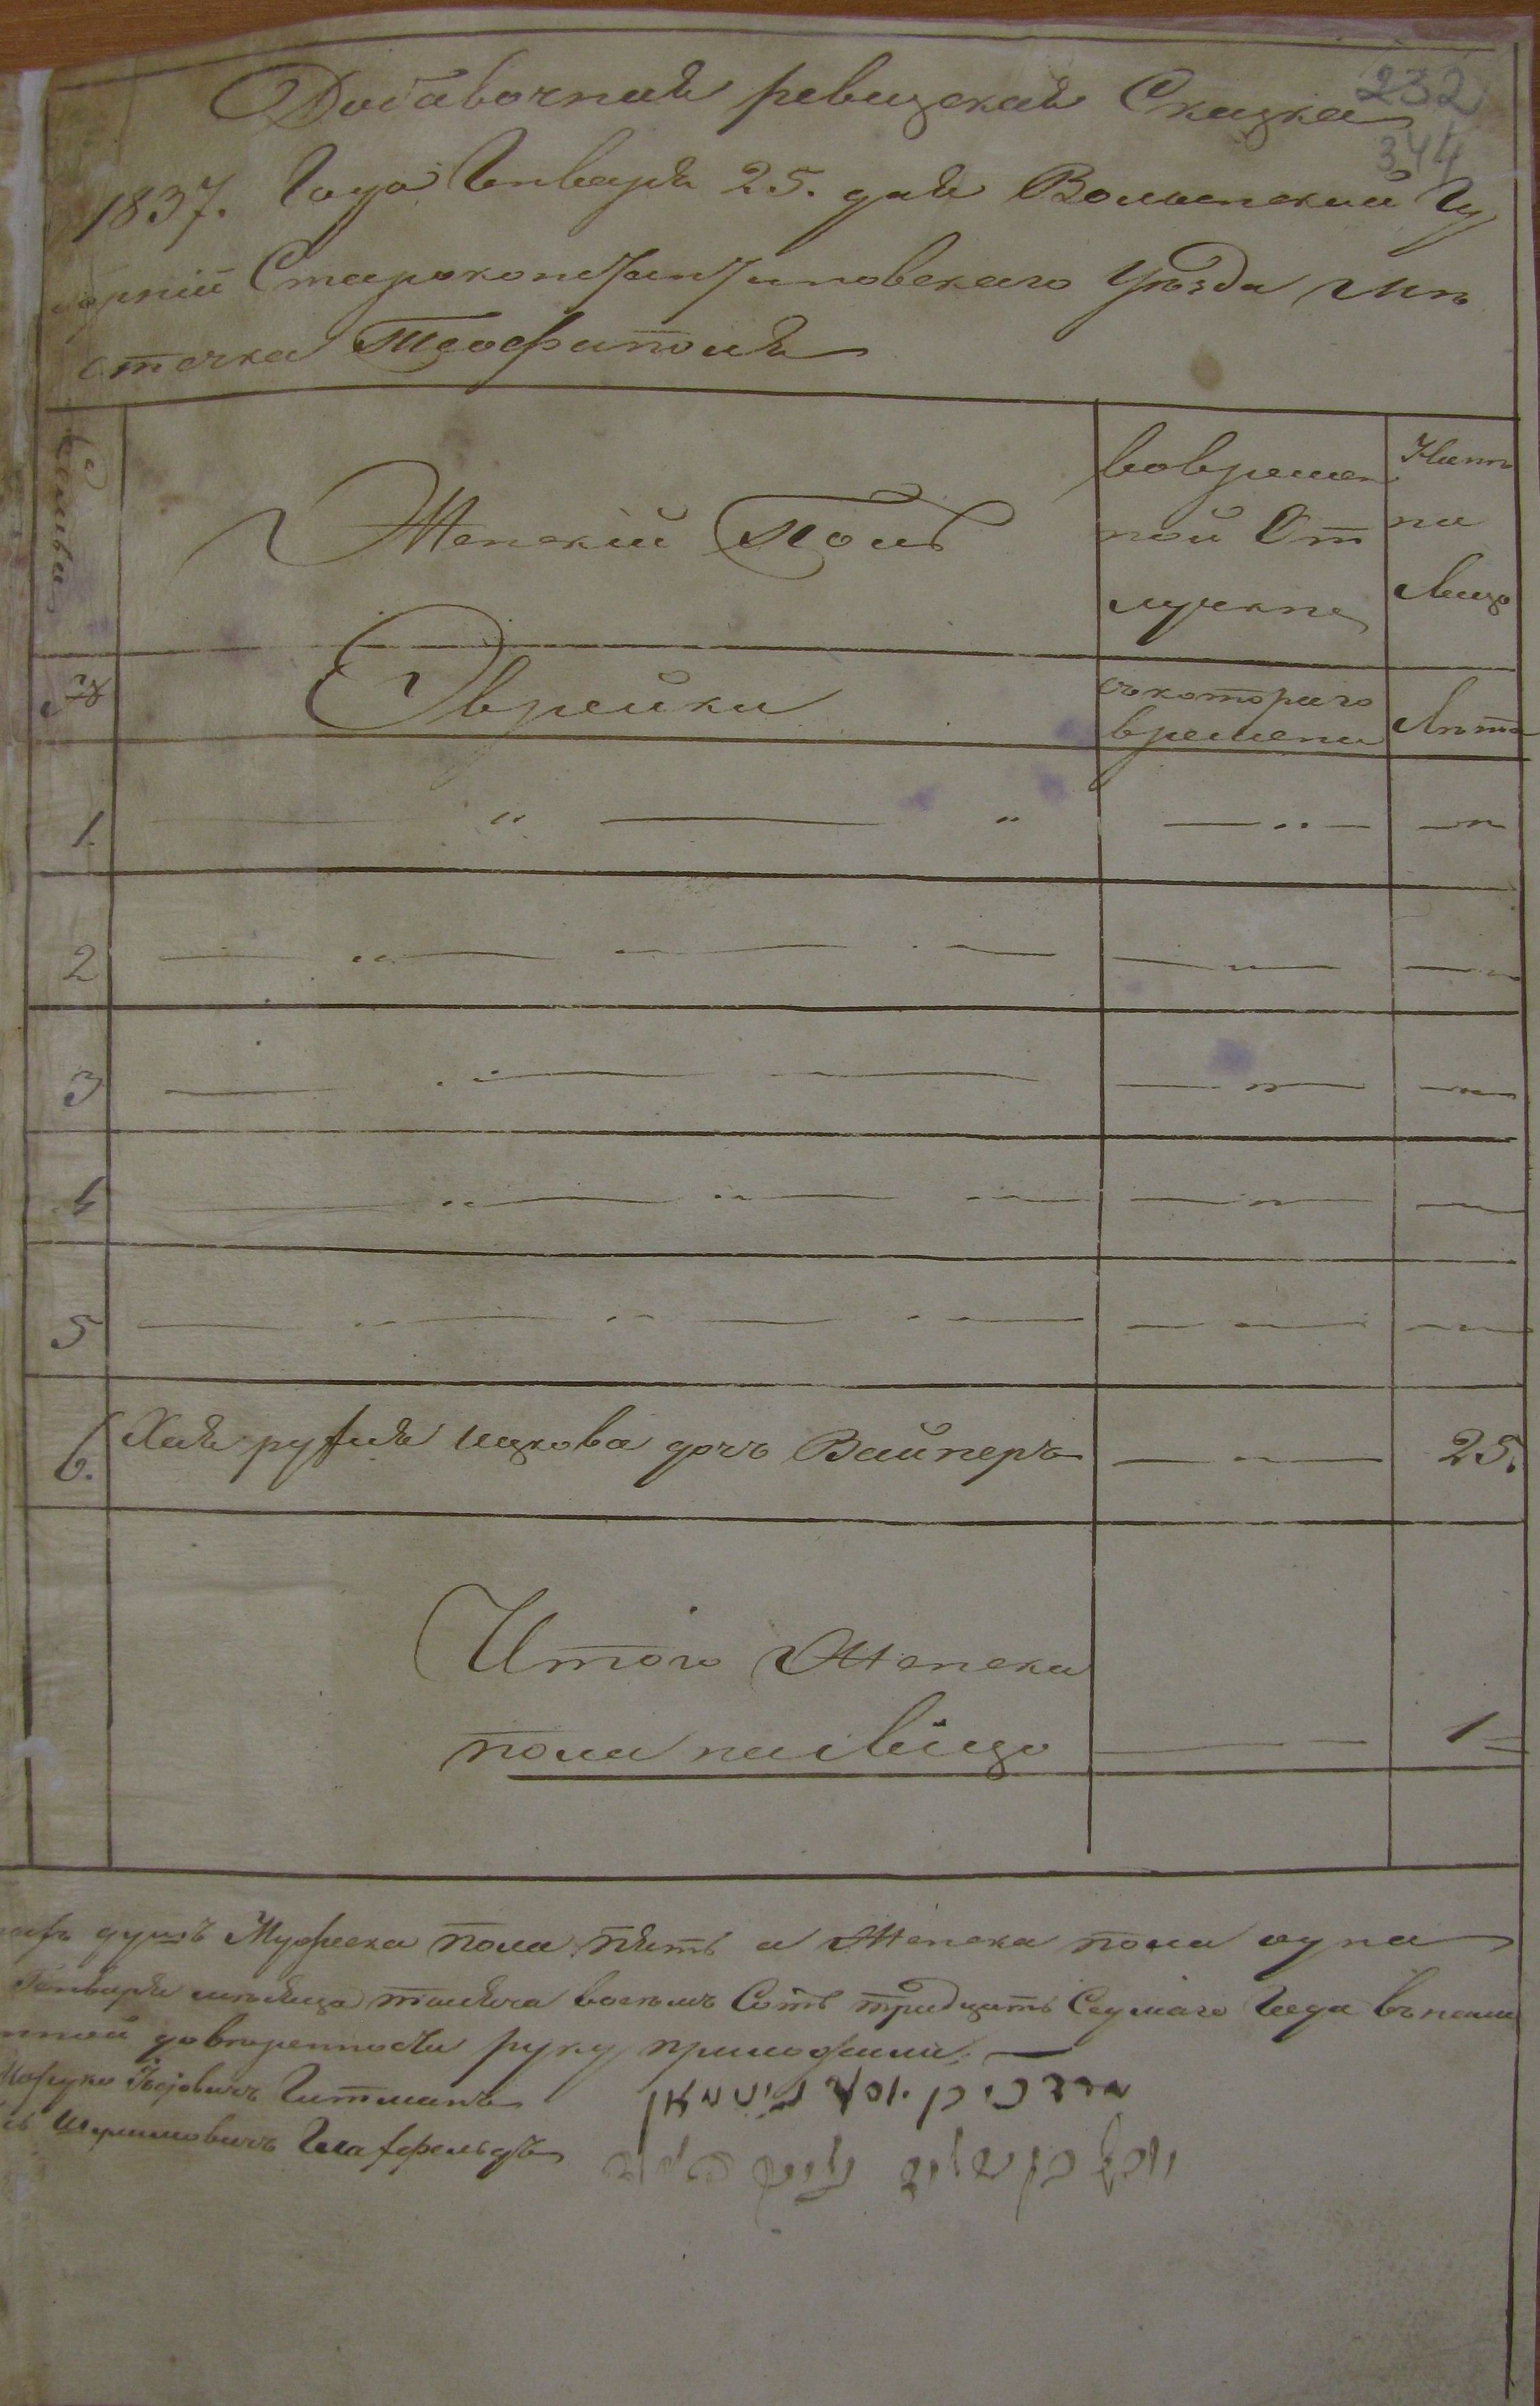 232
344
Добавочная ревизская Сказка
1837. Года Генваря 25. дня Волынский Гу
бернии Староконстантиновскаго Уезда Мѣ
стечка Теофиполя
Семьи
Женскій Полъ
вовремен
ной От
лучкѣ
Ныне
на
Лицо
№
Эврейки
съкотораго
времени
Лѣта
1.
2
3
4
5
6. Хая рухля ицкова дочь Вайнеръ 25.
Итого Женска
пола налицо 1
душъ Мужеска пола пять а Женска пола одна
Генваря мѣсяца тысяча восемъ Сотъ тридцать Седмаго Года въ
довѣренности руку приложили
Гитманъ
Глазфельдъ
מרדכי בן יוסף גיטמאן